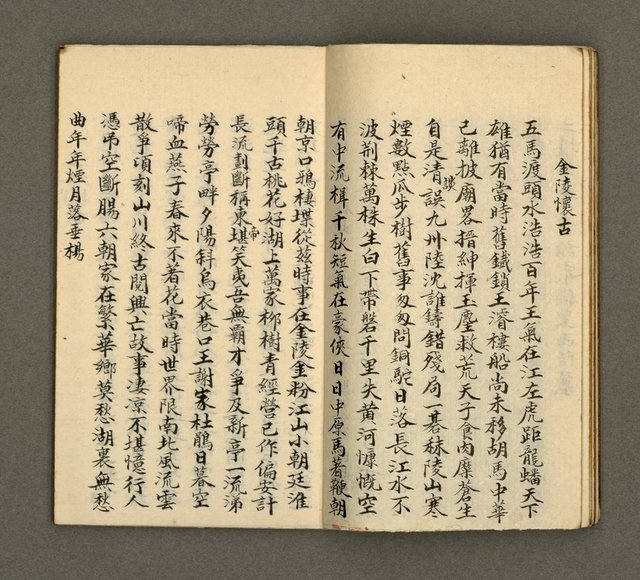 金陵懷古
五馬渡頭水浩浩百年王氣在江左虎距龍蟠天下
雄猶有當時舊鐵鎖王濬樓船尚未移胡馬中華
已離披廟畧搢紳揮玉麈救荒天子食肉糜蒼生
自是清談誤九州陸沈誰鑄錯殘局一碁秣陵山寒
煙數點瓜步樹舊事匆匆問銅駝日落長江水不
波荆棘萬株生白下帶礪千里失黄河慷慨空
有中流楫千秋短氣在豪俠日日中原馬著鞭朝
朝京口鴉棲堞從茲時事在金陵金粉江山小朝廷淮
頭千古桃花好湖上萬家栁樹青經營已作偏安計
長流劃斷稱東帝堪笑夷吾無霸才爭及新亭一流涕
勞勞亭畔夕陽斜烏衣巷口王謝家杜鵑日暮空
啼血燕子春來不着花當時世界限南北風流雲
散爭頃刻山川終古閱興亡故事凄凉不堪憶行人
憑弔空斷腸六朝家在繁華鄉莫愁湖裏無愁
曲年年煙月落垂楊